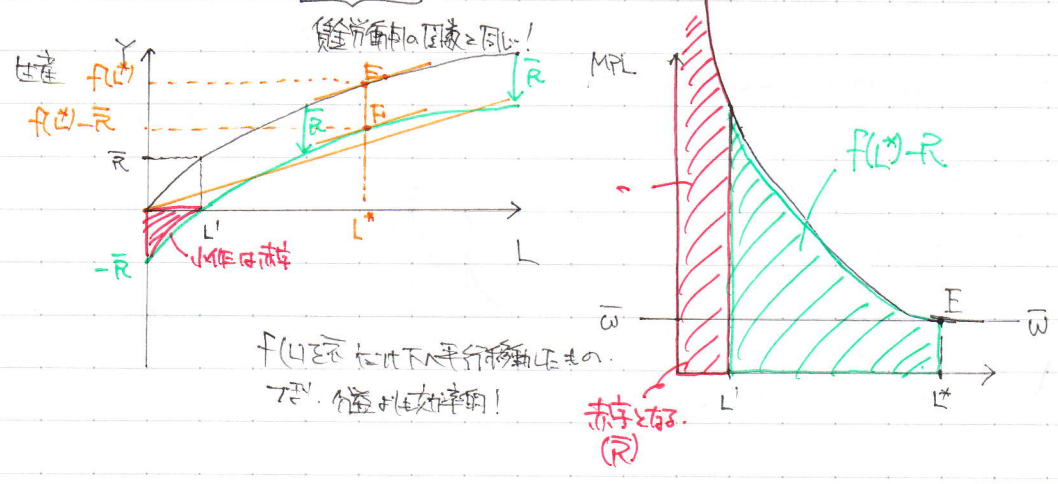 賃金労働者の係数と同じ!
生産 Y
f(L*)
f(L*)-R̄
R̄
-R̄
E
F
R̄
R̄
L'
L*
L
小作は赤字
f(L)をR̄だけ下へ平行移動したもの.
ただ、分益よりは効率的!
MPL
f(L*)-R̄
E
w̄
w̄
L'
L*
赤字となる.
(R̄)